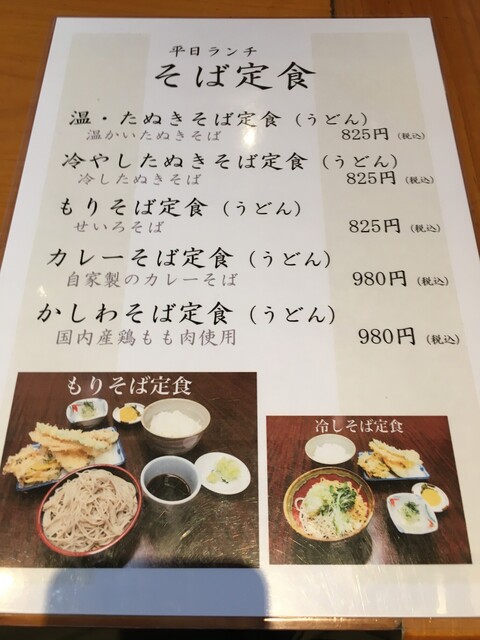 平日ランチ
そば定食
温・たぬきそば定食（うどん）
温かいたぬきそば 825円（税込）
冷やしたぬきそば定食（うどん）
冷したぬきそば 825円（税込）
もりそば定食（うどん）
せいろそば 825円（税込）
カレーそば定食（うどん）
自家製のカレーそば 980円（税込）
かしわそば定食（うどん）
国内産鶏もも肉使用 980円（税込）
もりそば定食
冷しそば定食